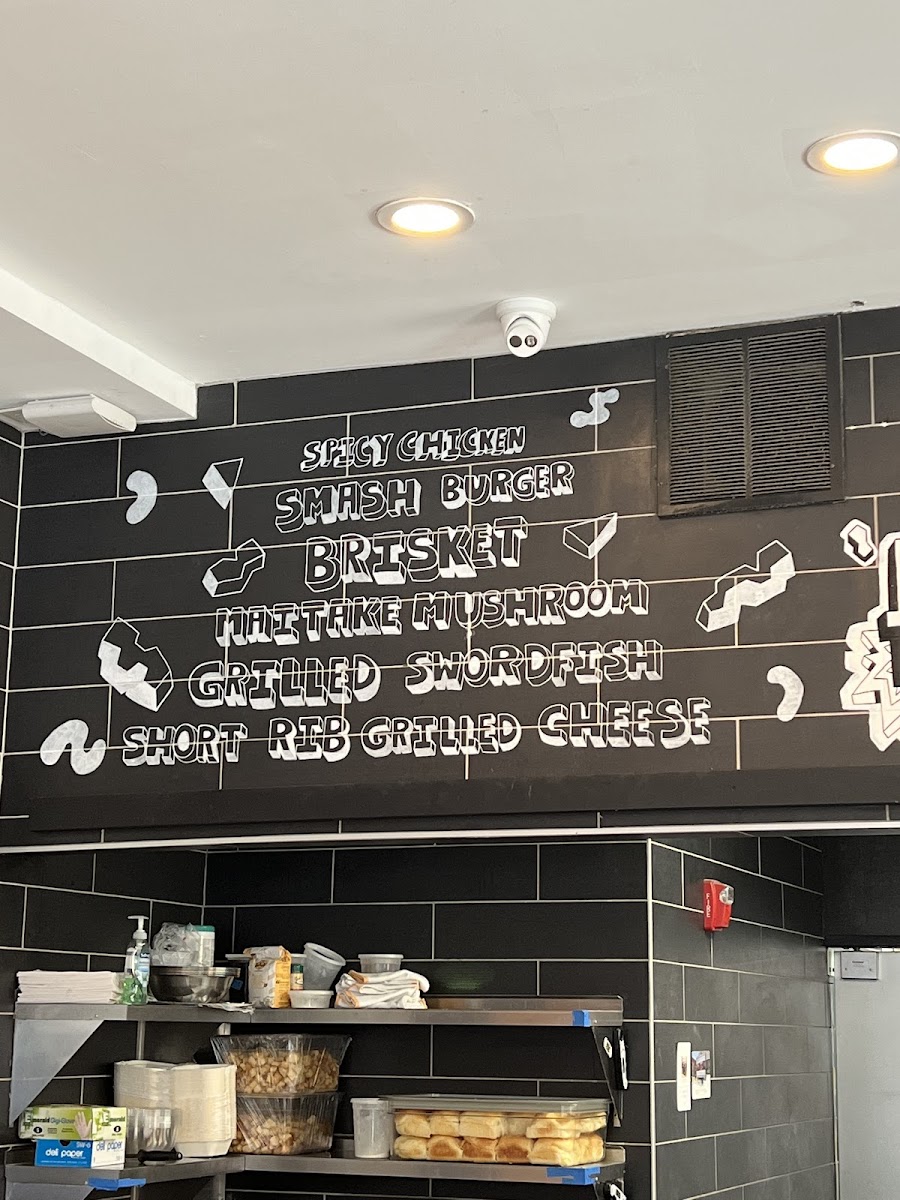 SPICY CHICKEN
SMASH BURGER
BRISKET
MAITAKE MUSHROOM
GRILLED SWORDFISH
SHORT RIB GRILLED CHEESE
FIRE
emerald
deli paper